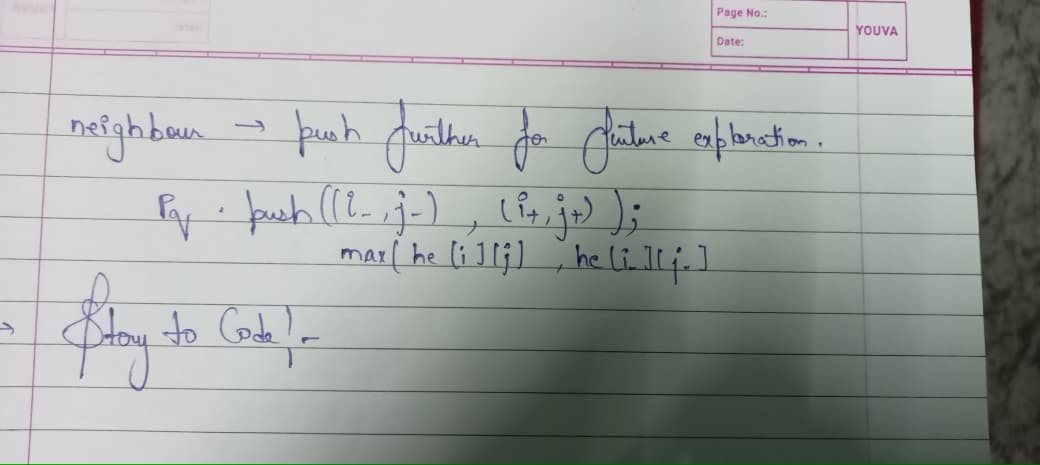 Page No.:
YOUVA
Date:
neighbour → push further for future exploration.
Pq . push((i-, j-) , (i+, j+) );
max( he [i][j] , he [i-][j-]
→ Story to Code!-